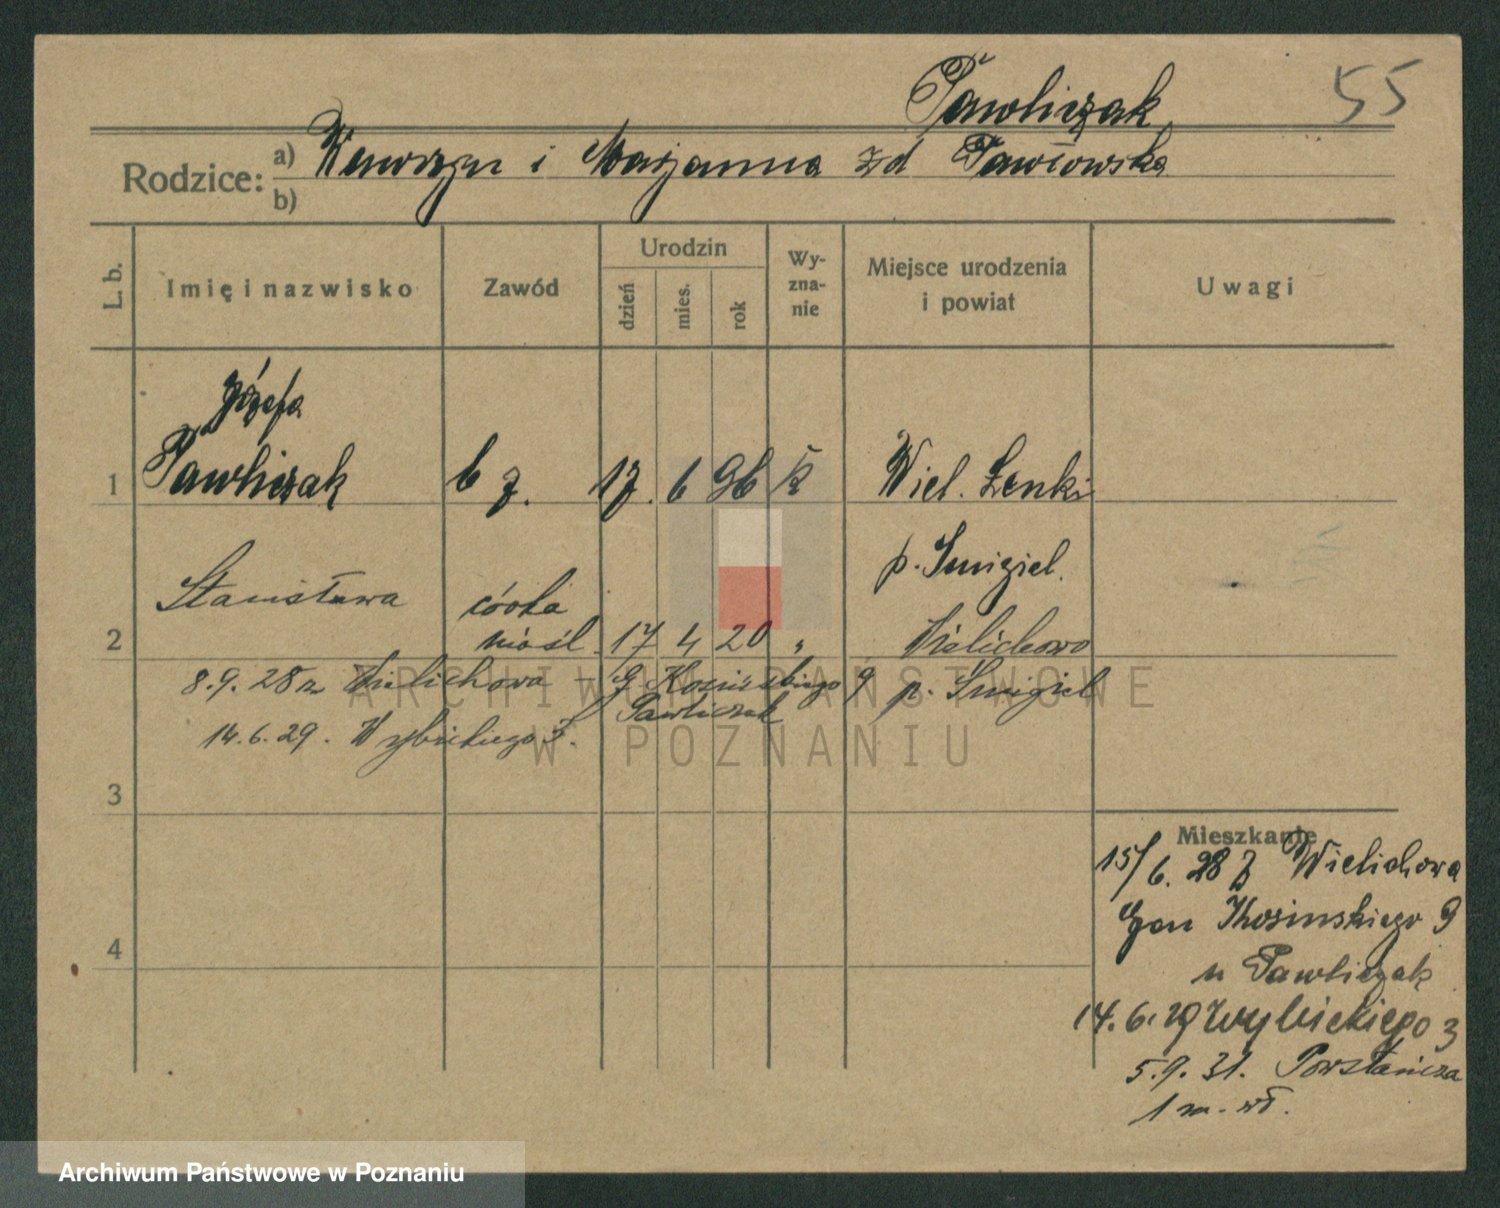 Pawliczak
55
Rodzice: a) Wawrzyn i Marjanna zd Pawłowska
b)
L. b.
Imię i nazwisko
Zawód
Urodzin
dzień
mies.
rok
Wy-
zna-
nie
Miejsce urodzenia
i powiat
Uwagi
Józefa
1 Pawliczak b z. 17. 6 96 k Wiel. Łenki
p. Śmigiel.
Stanisława córka
2 nieśl. 17 4 20 " Wielichowo
p. Śmigiel
8.9.28 z Wielichowa - G. Kosińskiego 9
Pawliczak
14.6.29. Wybickiego 3.
3
4
Mieszkanie
15/6. 28 z Wielichowa
Gen Kosinskiego 9
u Pawliczak
14.6.29 Wybickiego 3
5.9.31. Powstańcza
1 m. wł.
ARCHIWUM PAŃSTWOWE
W POZNANIU
Archiwum Państwowe w Poznaniu